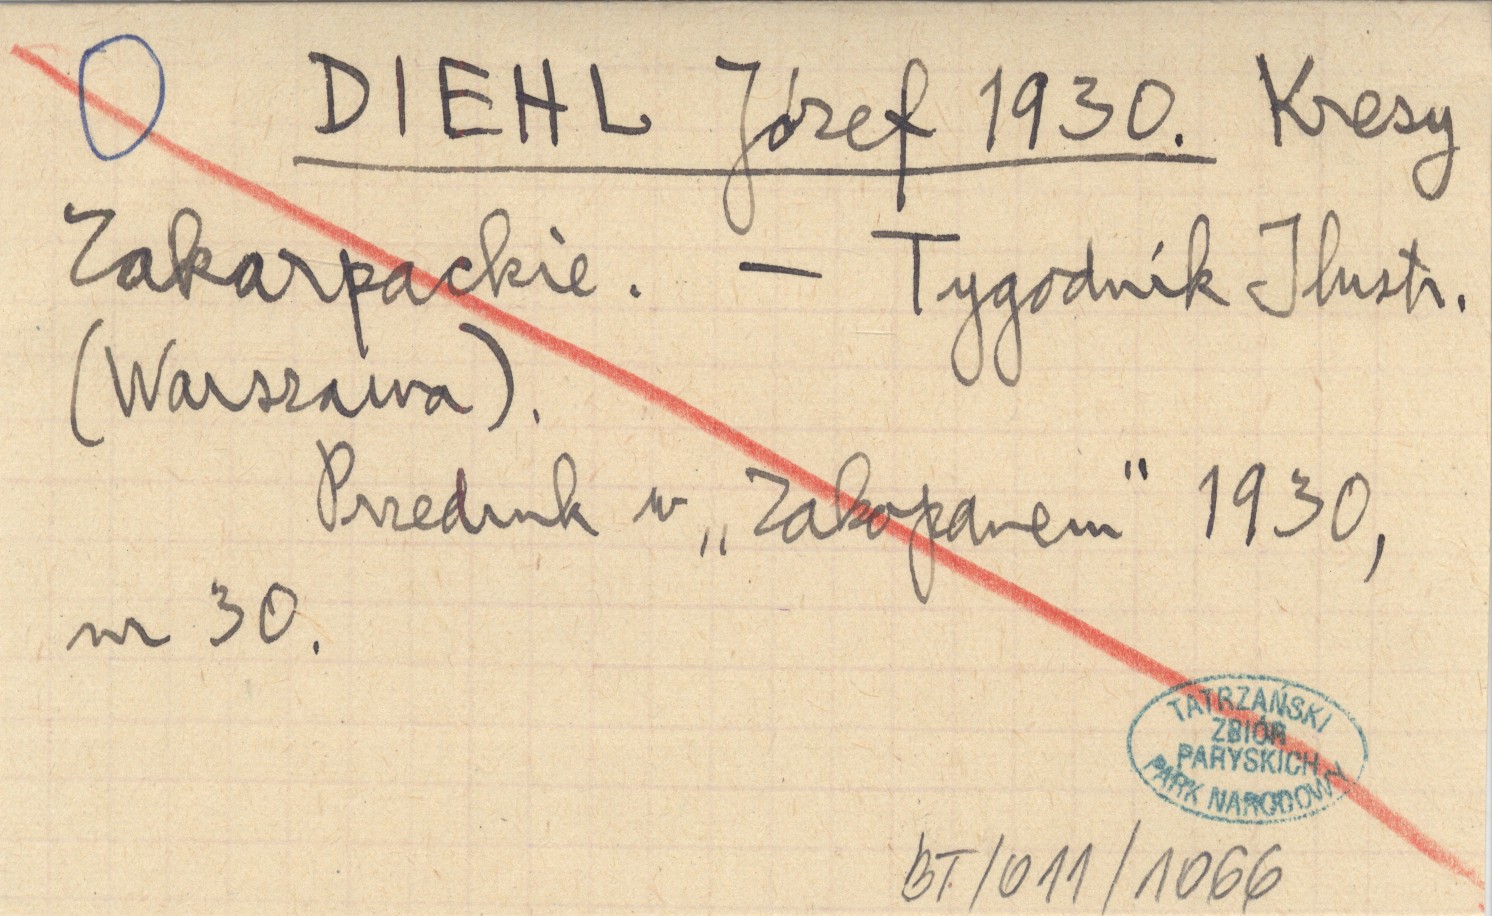 DIEHL Józef 1930. Kresy
Zakarpackie. — Tygodnik Ilustr.
(Warszawa).
Przedruk w „Zakopanem“ 1930,
nr 30.
TATRZAŃSKI
ZBIÓR
PARYSKICH
PARK NARODOWY
BT/011/1066